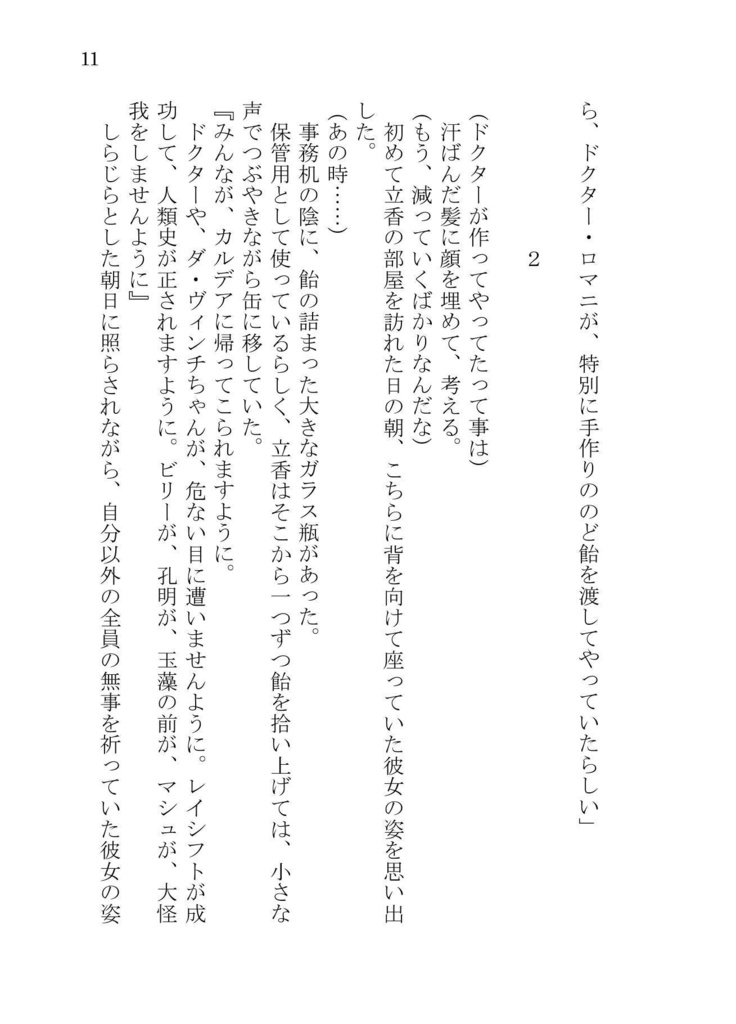 11
ら、ドクター・ロマニが、特別に手作りののど飴を渡してやっていたらしい」
2
(ドクターが作ってやってたって事は)
汗ばんだ髪に顔を埋めて、考える。
(もう、減っていくばかりなんだな)
初めて立香の部屋を訪れた日の朝、こちらに背を向けて座っていた彼女の姿を思い出
した。
(あの時……)
事務机の陰に、飴の詰まった大きなガラス瓶があった。
保管用として使っているらしく、立香はそこから一つずつ飴を拾い上げては、小さな
声でつぶやきながら缶に移していた。
『みんなが、カルデアに帰ってこられますように。
ドクターや、ダ・ヴィンチちゃんが、危ない目に遭いませんように。レイシフトが成
功して、人類史が正されますように。ビリーが、孔明が、玉藻の前が、マシュが、大怪
我をしませんように』
しらじらとした朝日に照らされながら、自分以外の全員の無事を祈っていた彼女の姿